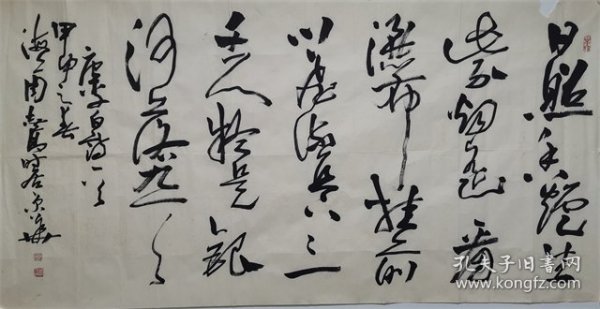 日照香爐生
紫烟遥看
瀑布挂前
川飛流直下三
千尺疑是銀
河落九天
唐李白詩一首
甲申之春
海南 時客京華
孔夫子旧书网
www.kongfz.com